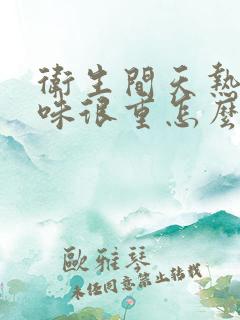 衛生間天熱
味很重怎麼
歐雅琴
未经同意禁止转载